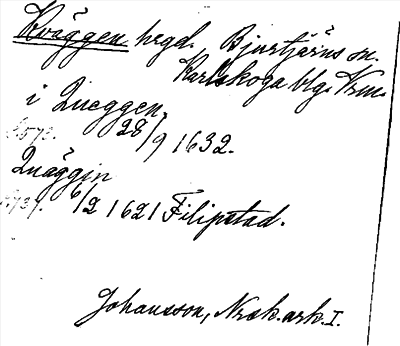 Kväggen hrgd. Bjurtjärns sn.
Karlskoga blg. Vrm.
i Queggen
28/9 1632.
Quäggin
6/2 1621 Filipstad.
Johansson, Nrok.ark. I.